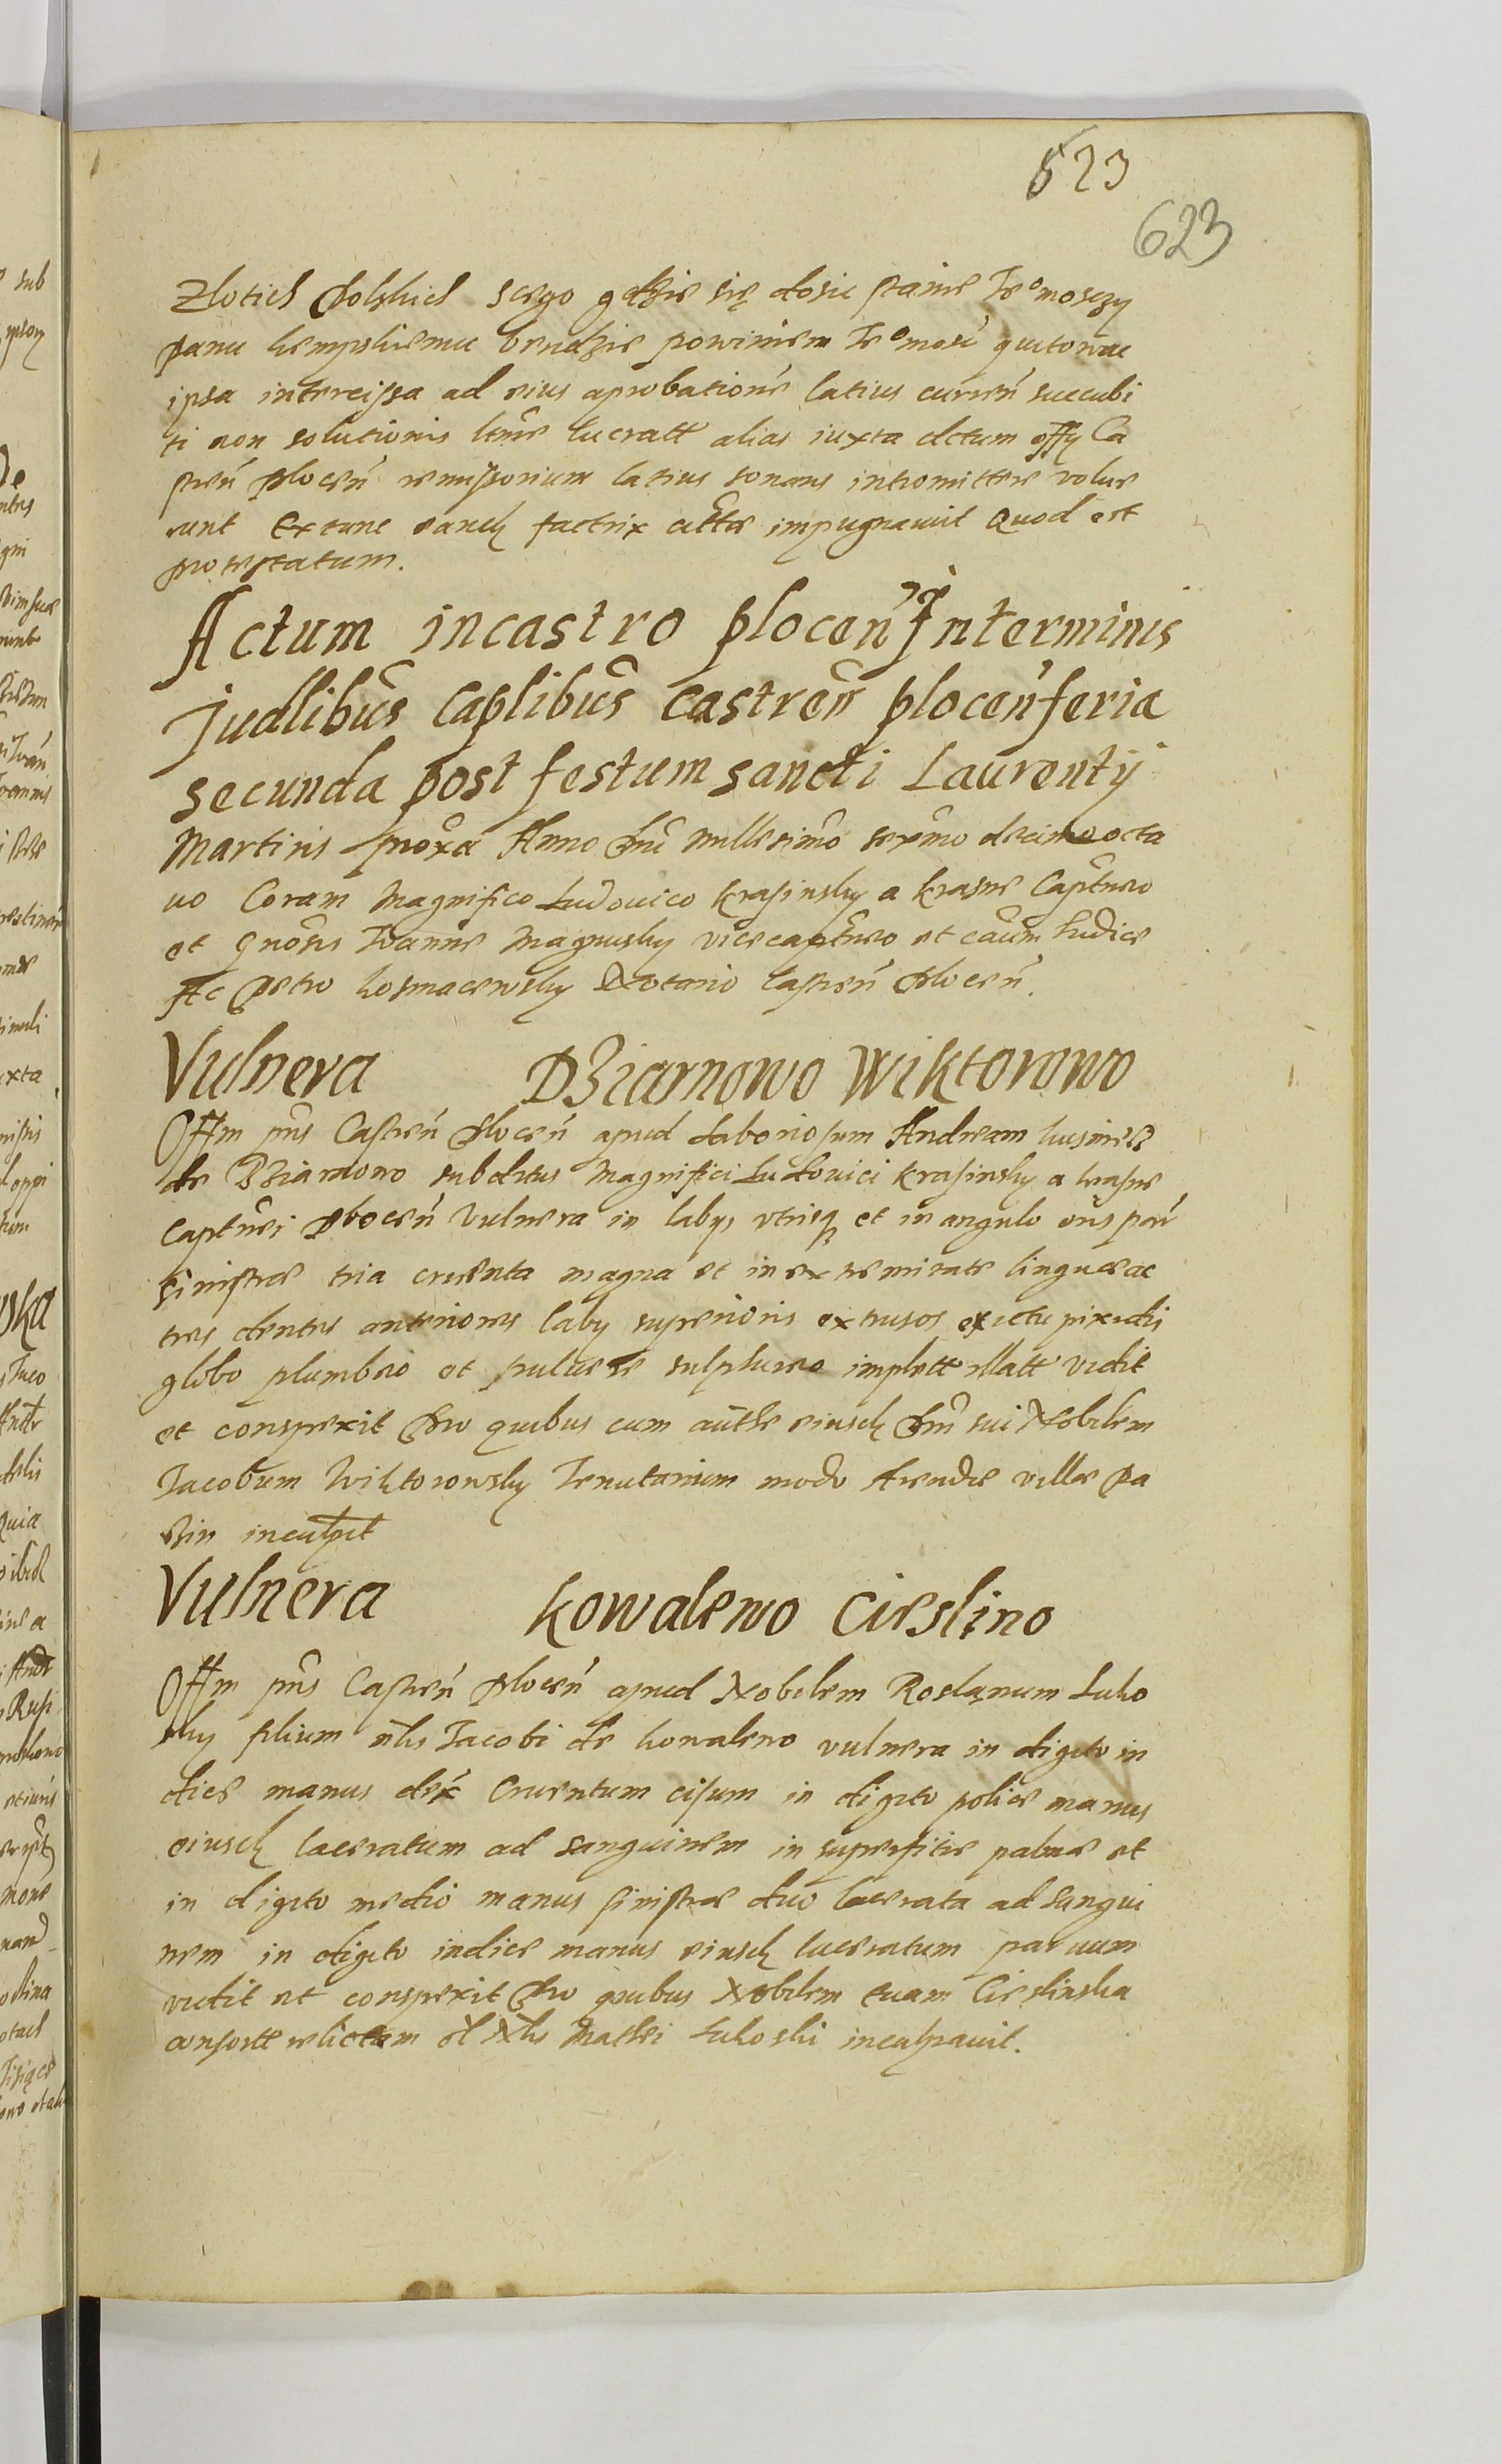 623
623
Zlotich Polskich sczego gdzie się dosic stanie Je° mosczy
panu kempskiemu bendzie powiniem Je° mosć quitowac
ipsa intercissa ad eius aprobationē latius curreń succubi
ti non solutionis lucratt alias iuxta dctum offy Ca
streń Ploceń remissorium latius sonans intromittere volue
runt Extunc eandę factrix impugnauit Quod est
protestatum.
Actum incastro ploceń Interminis
Judlibus Caplibus castreń ploceń feria
secunda post festum sancti Laurentÿ
Martiris proxa Anno Dni Millesimo sexmo decimo octa
uo Coram Magnifico Ludouico Krasinsky a Krasne Captneo
et Gnosis Joanne Magnusky vicecaptneo et caum Judice
Ac Petro kosmacewsky Notario Castreń Ploceń.
Vulnera Dziarnowo Wiktorowo
Offm pns Castreń Ploceń apud Laboriosum Andream
de Dziarnowo subditus Magnifici Ludouici Krasinsky a krasne
Captnei Ploceń Vulnera in labys vtrisq et in angulo oris par
sinistrae tria cruenta magna et in extremitate linguae ac
tres dentes anteriores laby superioris extrusos ex ictu pixidis
globo plumbeo et puluere sulphureo implett illatt vidit
et conspexit Pro quibus cum authe eiusdę Dni sui Nobilem
Jacobum Wiktorowsky Tenutarium modo Arendae villae Pa
rzin inculpit
Vulnera Kowalewo Cieslino
Offm pns Castreń Ploceń apud Nobilem Roslanum Luko
sky filium nlis Jacobi de kowalewo vulnera in digito in
dice manus dex Cruentum cisum in digito police manus
eiusdę laceratum ad sanguinem in superfitie palmae et
in digito medio manus sinistrae duo lacerata ad sangui
nem in digito indice manus eiusdę laceratum paruum
vidit et conspexit Pro quibus Nobilem Euam Cieslinska
consorte relictam ol Nlis Mathei Lukoski inculpauit.